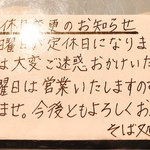 休日変更のお知らせ
曜日が定休日になりま
は大変ご迷惑おかけいた
曜日は営業いたしますので
ませ。今後ともよろしくお
そば処